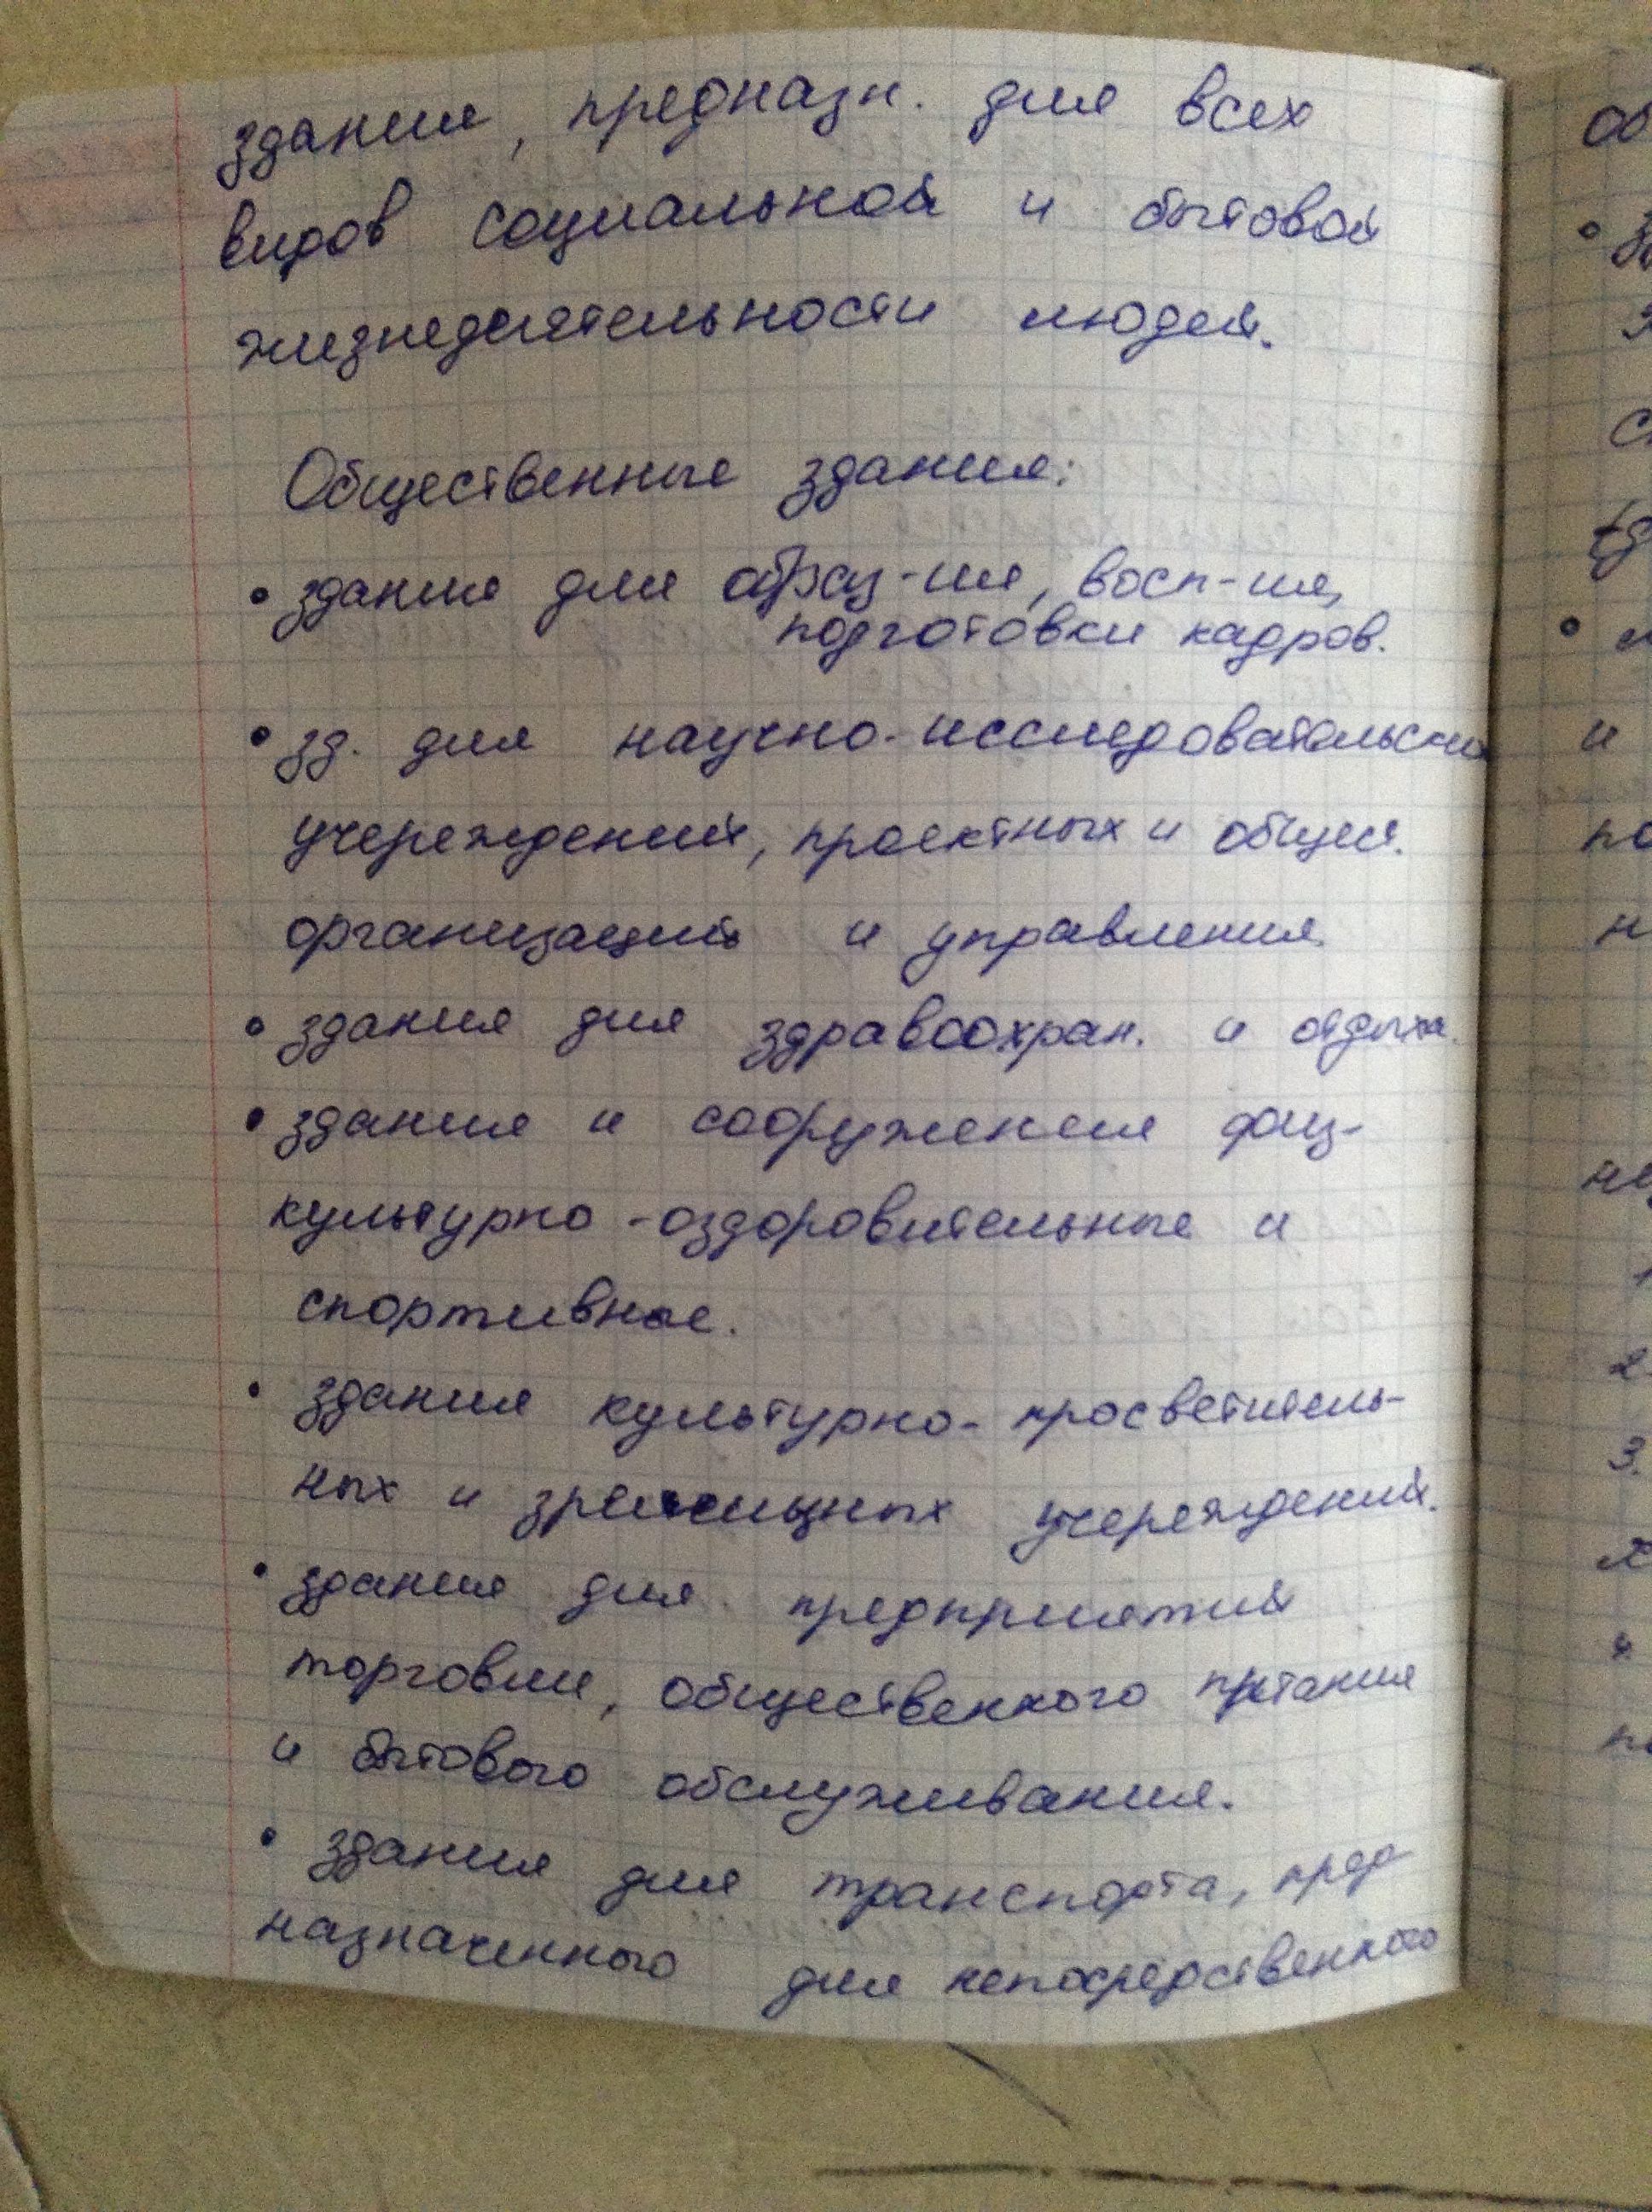 здания, предназн. для всех
видов социальной и бытовой
жизнедеятельности людей.
Общественные здания:
• здания для образ-ия, восп-ия,
подготовки кадров.
• зд. для научно-исследовательских
учереждений, проектных и общест.
организаций и управления
• здания для здравоохран. и отдыха.
• здания и сооружения физ-
культурно-оздоровительные и
спортивные.
• здания культурно-просветитель-
ных и зрелищных учереждений.
• здания для предприятий
торговли, общественного питания
и бытового обслуживания.
• здания для транспорта, пред
назначенного для непосредственного
об
•
и
по
н
1
2.
3.
4.